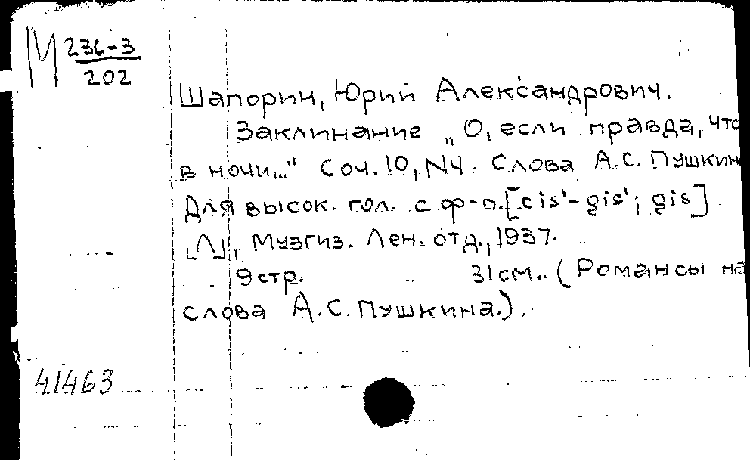 М 236-3
202
Шапорин, Юрий Александрович.
Заклинание „О, если правда, что
в ночи..." Соч. 10, N4. Слова А.С. Пушкин
Для высок. гол. с ф-п. [cis'-gis'; gis]
[Л], Музгиз. Лен. отд., 1937.
9 стр. 31 см. (Романсы на
слова А.С. Пушкина.).
41463